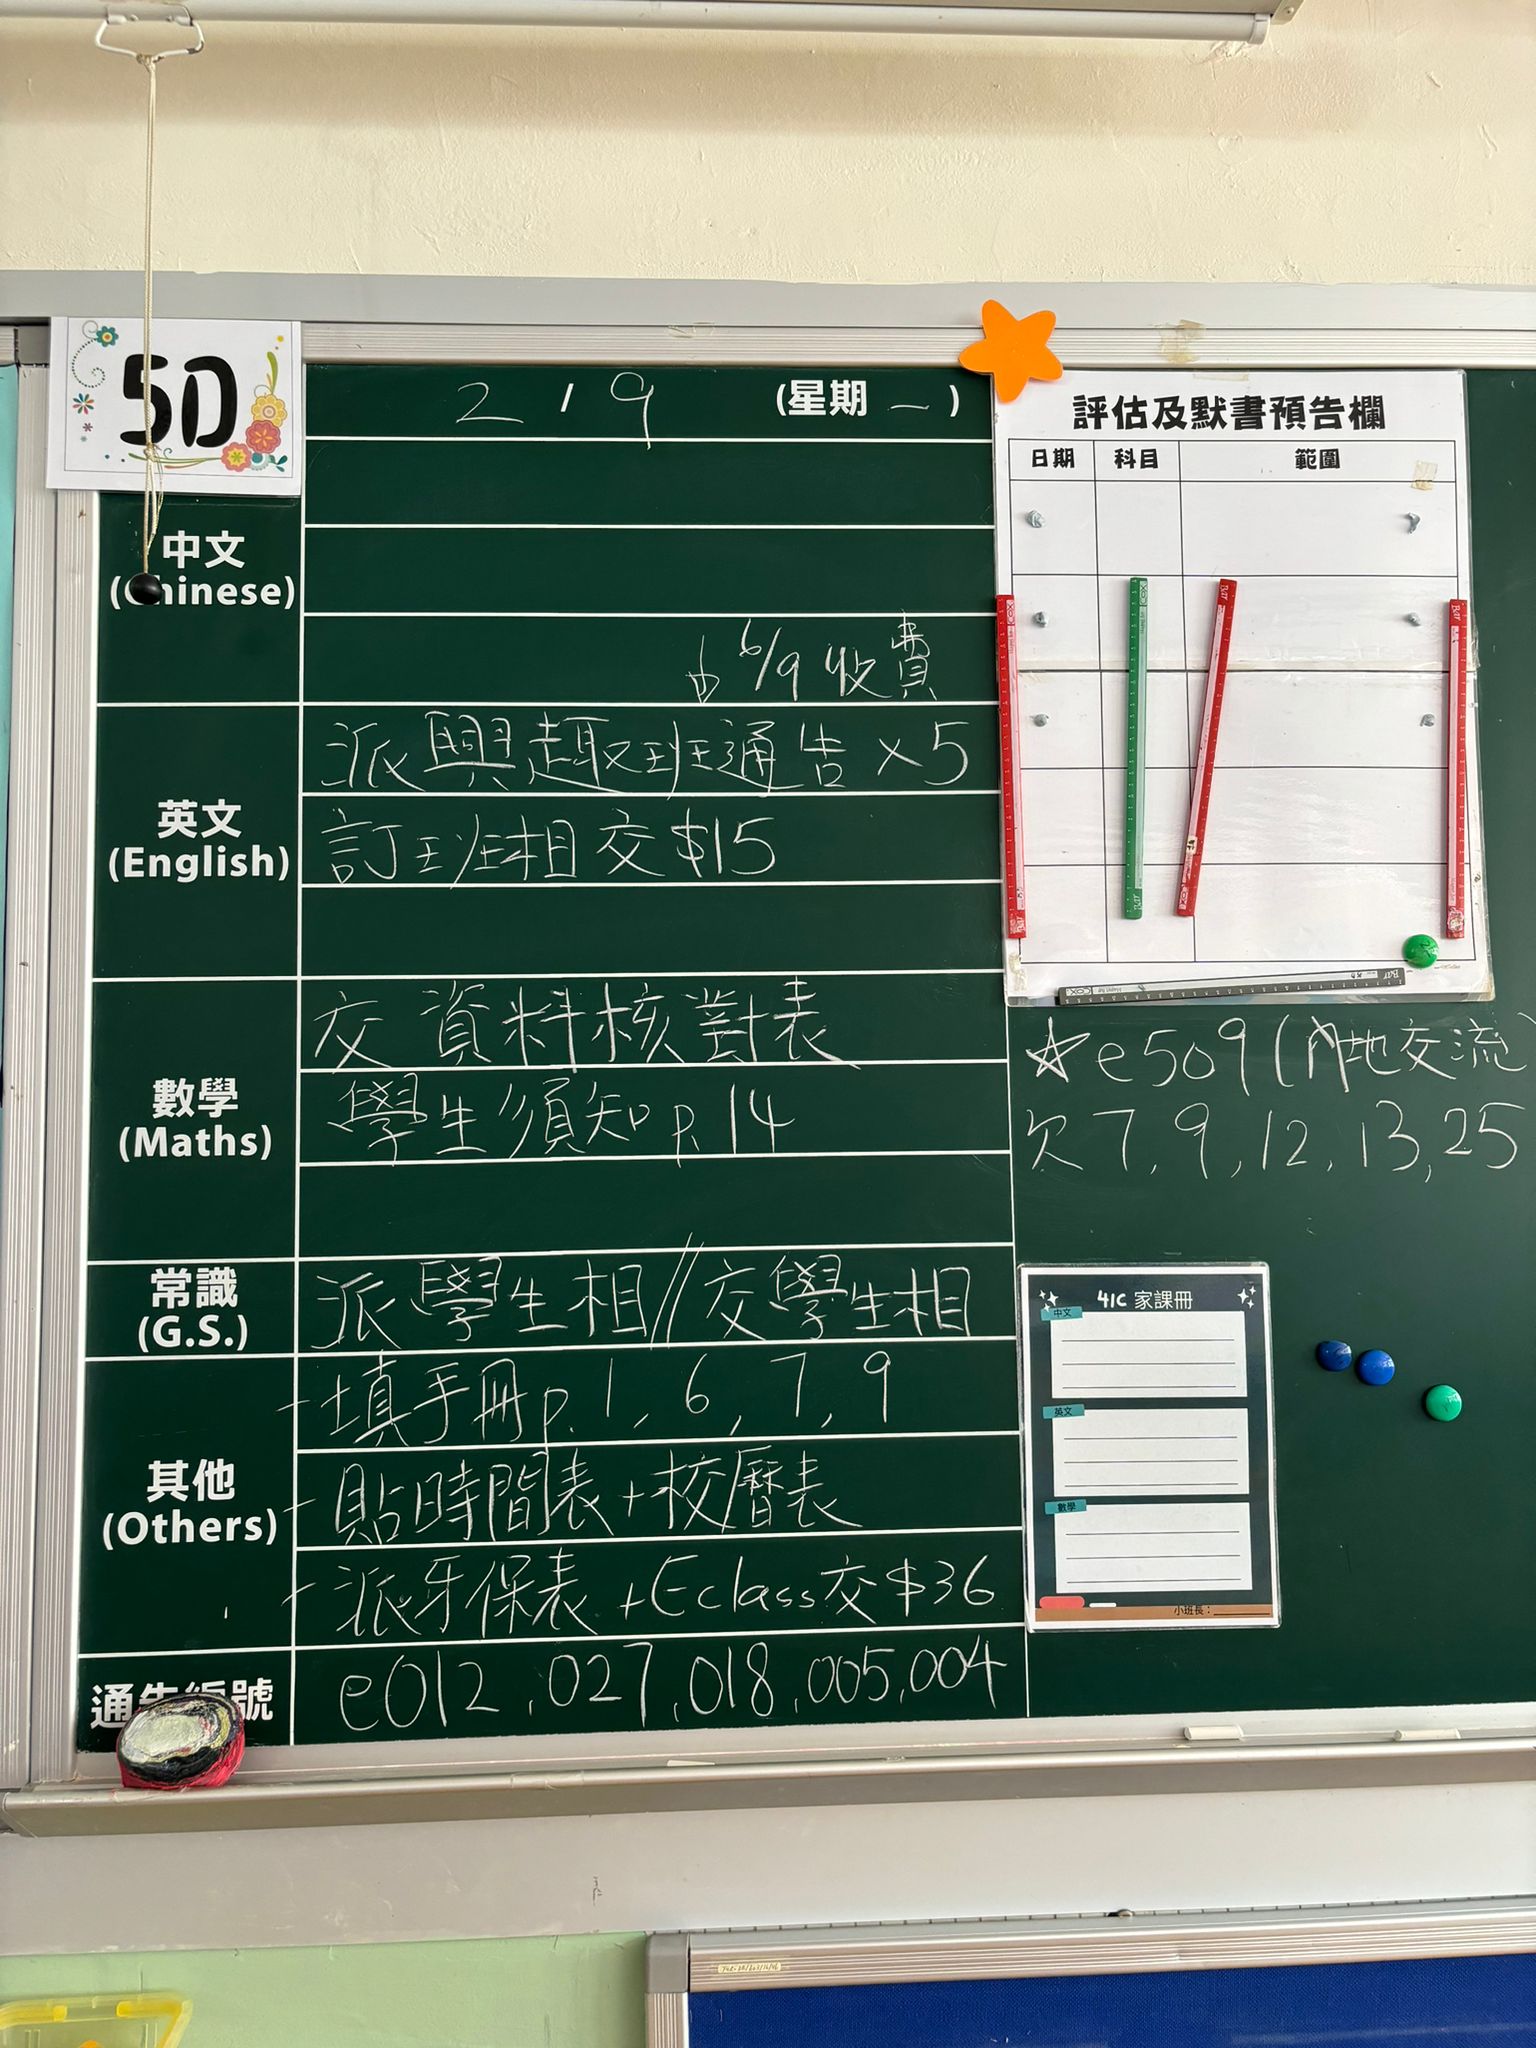 5D
2 / 9 (星期 一 )
中文
(Chinese)
6/9 收費
英文
(English)
派興趣班通告 ×5
訂班相交 $15
數學
(Maths)
交資料核對表
學生須知 p.14
常識
(G.S.)
派學生相//交學生相
其他
(Others)
- 填手冊 p.1, 6, 7, 9
- 貼時間表+校曆表
- 派牙保表 +Eclass交$36
通告編號
e012,027,018,005,004
評估及默書預告欄
日期 科目 範圍
☆e509(內地交流)
欠7,9,12,13,25
4IC 家課冊
中文
英文
數學
小班長：